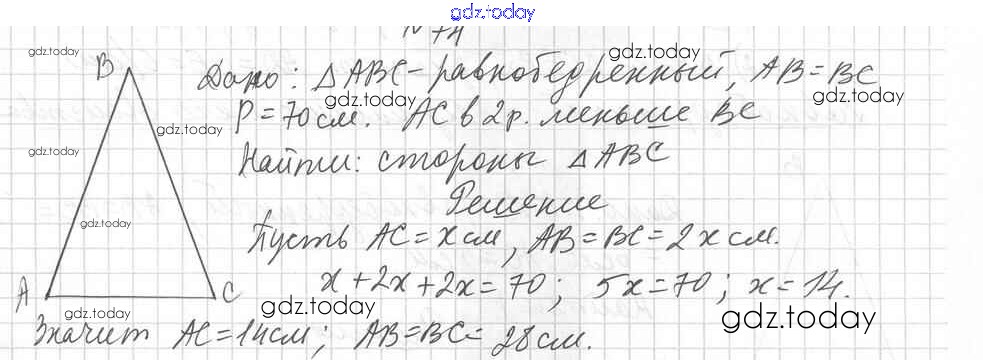 gdz.today
№ 74
gdz.today
B
Дано: △ABC - равнобедренный, AB = BC
gdz.today
gdz.today
gdz.today
P = 70 см. AC в 2 р. меньше BC
gdz.today
gdz.today
Найти: стороны △ABC
Решение
gdz.today
Пусть AC = x см, AB = BC = 2x см.
x + 2x + 2x = 70; 5x = 70; x = 14.
A C
gdz.today
gdz.today
gdz.today
Значит AC = 14 см; AB = BC = 28 см.